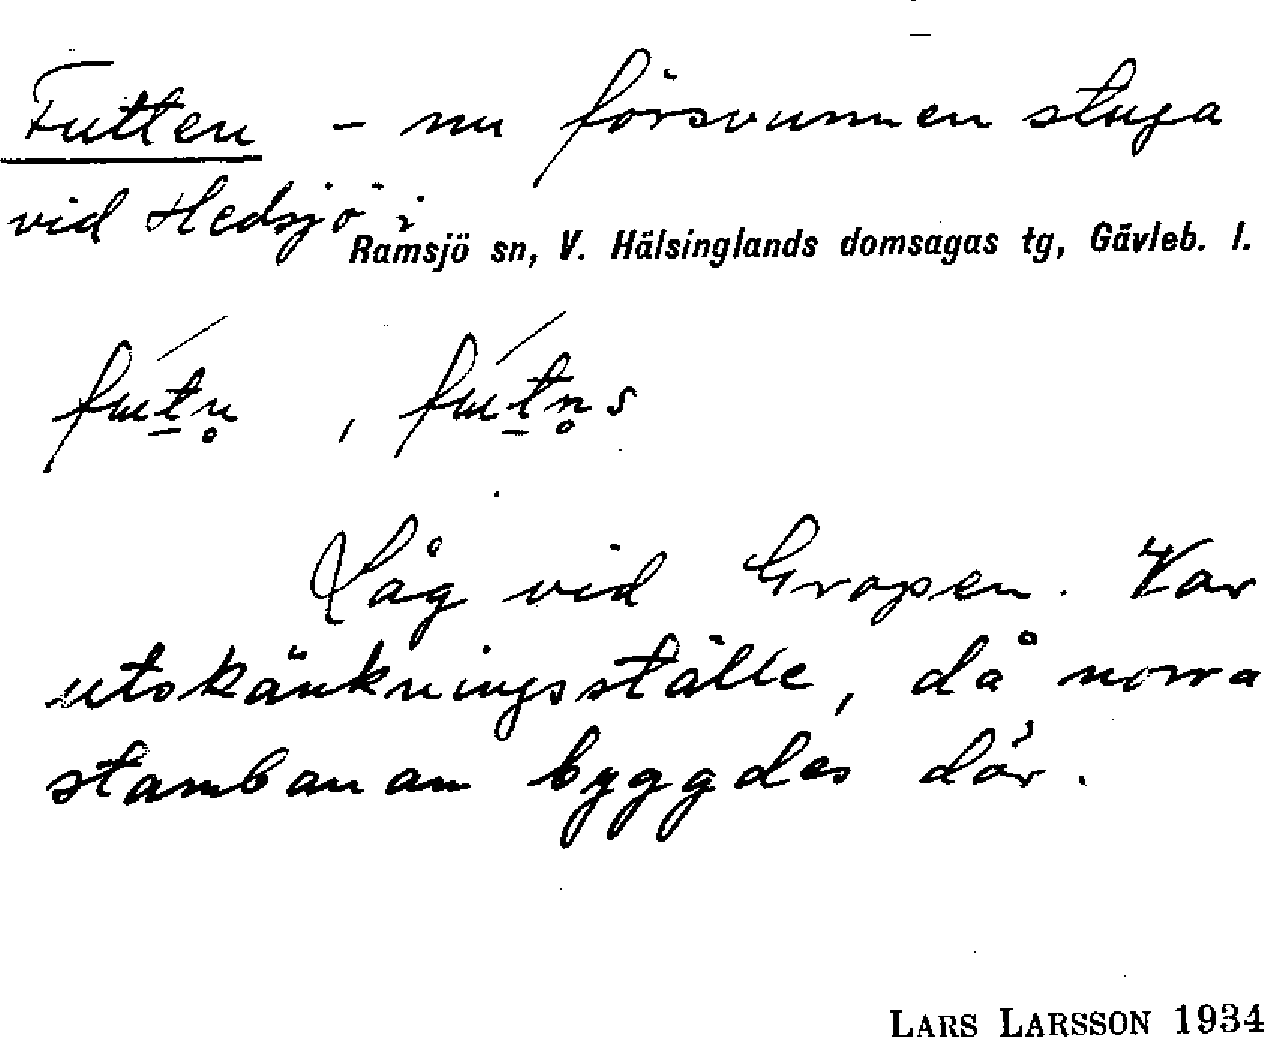 Futten - nu försvunnen stuga
vid Hedsjö i
Ramsjö sn, V. Hälsinglands domsagas tg, Gävleb. l.
fútn̥, fútn̥s
Låg vid Gropen. Var
utskänkningsställe, då norra
stambanan byggdes där.
LARS LARSSON 1934